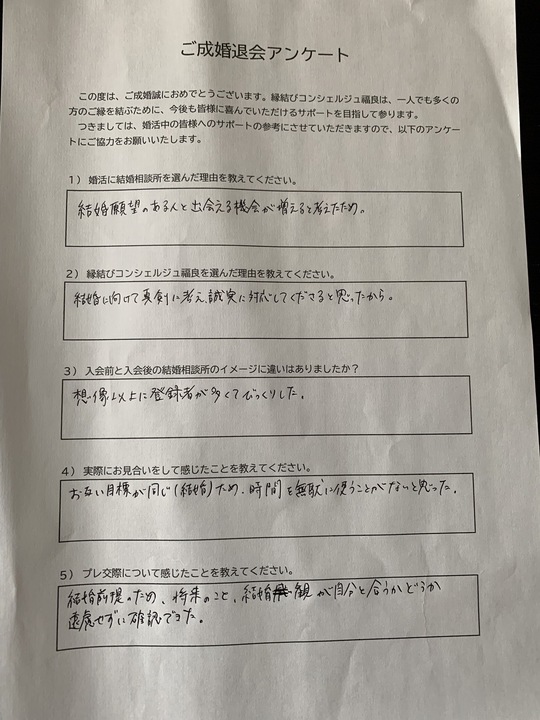 ご成婚退会アンケート
この度は、ご成婚誠におめでとうございます。縁結びコンシェルジュ福良は、一人でも多くの
方のご縁を結ぶために、今後も皆様に喜んでいただけるサポートを目指して参ります。
つきましては、婚活中の皆様へのサポートの参考にさせていただきますので、以下のアンケー
トにご協力をお願いいたします。
1） 婚活に結婚相談所を選んだ理由を教えてください。
結婚願望のある人と出会える機会が増えると考えたため。
2） 縁結びコンシェルジュ福良を選んだ理由を教えてください。
結婚に向けて真剣に考え、誠実に対応してくださると思ったから。
3） 入会前と入会後の結婚相談所のイメージに違いはありましたか？
想像以上に登録者が多くてびっくりした。
4） 実際にお見合いをして感じたことを教えてください。
お互い目標が同じ(結婚)ため、時間を無駄に使うことがないと思った。
5） プレ交際について感じたことを教えてください。
結婚前提のため、将来のこと、結婚観が自分と合うかどうか
遠慮せずに確認できた。